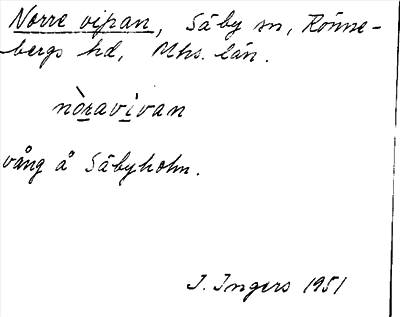 Norre vipan, Säby sn, Rönne-
bergs hd, Mhs. län.
nòravìvan
vång å Säbyholm.
I. Ingers 1951